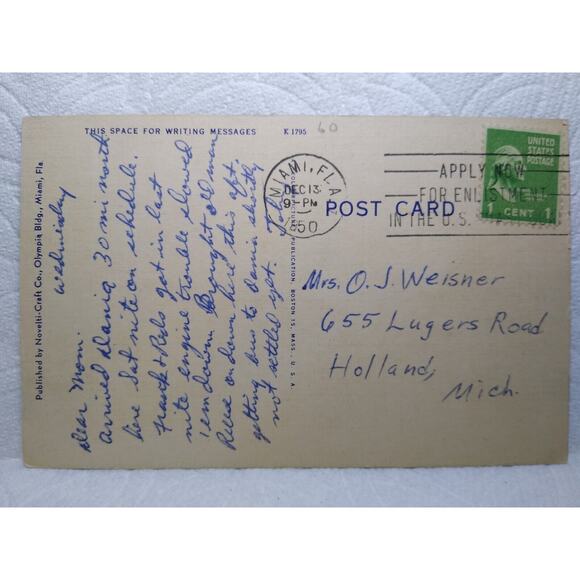 THIS SPACE FOR WRITING MESSAGES
K 1795
60
Published by Novelti-Craft Co., Olympia Bldg., Miami, Fla.
Wednesday
Dear Mom.
Arrived Dania 30 mi north
here Sat nite on schedule.
Frank & Rels got in last
nite engine trouble slowed
'em down. Brought old man
Reese on down here this aft.
getting bus to Dania shortly
not settled yet.
PUBLICATION, BOSTON 15, MASS., U. S. A.
MIAMI, FLA.
DEC 13
9 - PM
1950
APPLY NOW
FOR ENLISTMENT
IN THE U.S.
UNITED
STATES
POSTAGE
1 CENT 1
POST CARD
Mrs. O. J. Weisner
655 Lugers Road
Holland,
Mich.